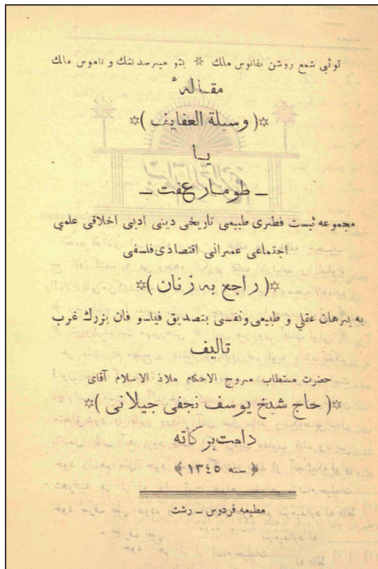 توئی شمع روشن بفانوس ملك * بتو میرسد ننك و ناموس ملك
مقاله ٔ
*( وسیلة العفایف )*
یا
ـ طومار عفت ـ
مجموعه ئیست فطری طبیعی تاریخی دینی ادبی اخلاقی علمی
اجتماعی عمرانی اقتصادی فلسفی
*( راجع به زنان )*
به برهان عقلی و طبیعی ونفسی بتصدیق فیلسوفان بزرك غرب
تالیف
حضرت مستطاب مروج الاحکام ملاذ الاسلام آقای
*( حاج شیخ یوسف نجفی جیلانی )*
دامت برکاته
﴿ سنه ١٣٤٥ ﴾
مطبعه فردوس ـ رشت